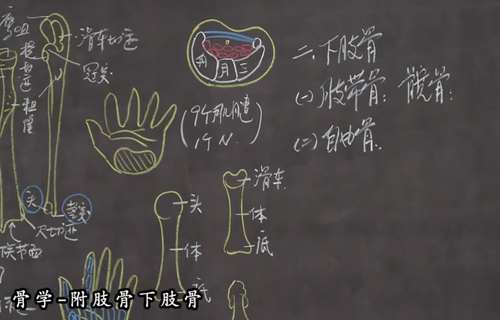 滑车切迹
冠突
粗隆
头
尺切迹
茎突
关节面
舟 月 三
(9个肌腱
1个N.)
头
体
底
滑车
体
底
二、下肢骨
(一)肢带骨：髋骨：
(二)自由骨：
骨学-附肢骨下肢骨